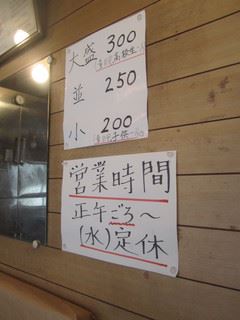 大盛 300
高校生
並 250
小 200
子供
営業時間
正午ごろ～
(水)定休